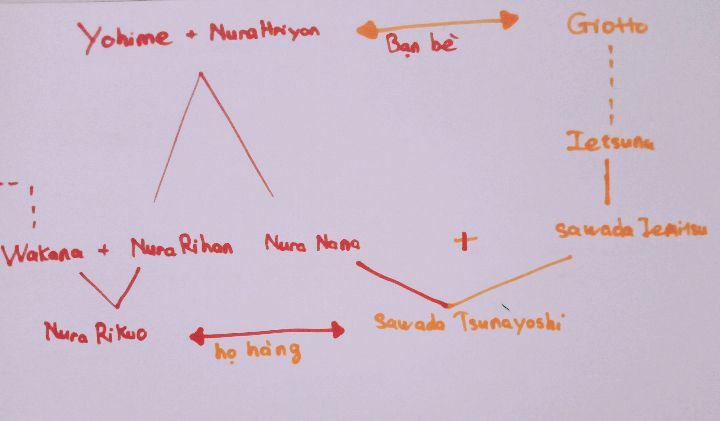 Yohime + NuraHriyon
Bạn bè
Giotto
Ietsuna
Wakana + Nura Rihan
Nura Nana
+
Sawada Iemitsu
Nura Rikuo
họ hàng
Sawada Tsunayoshi